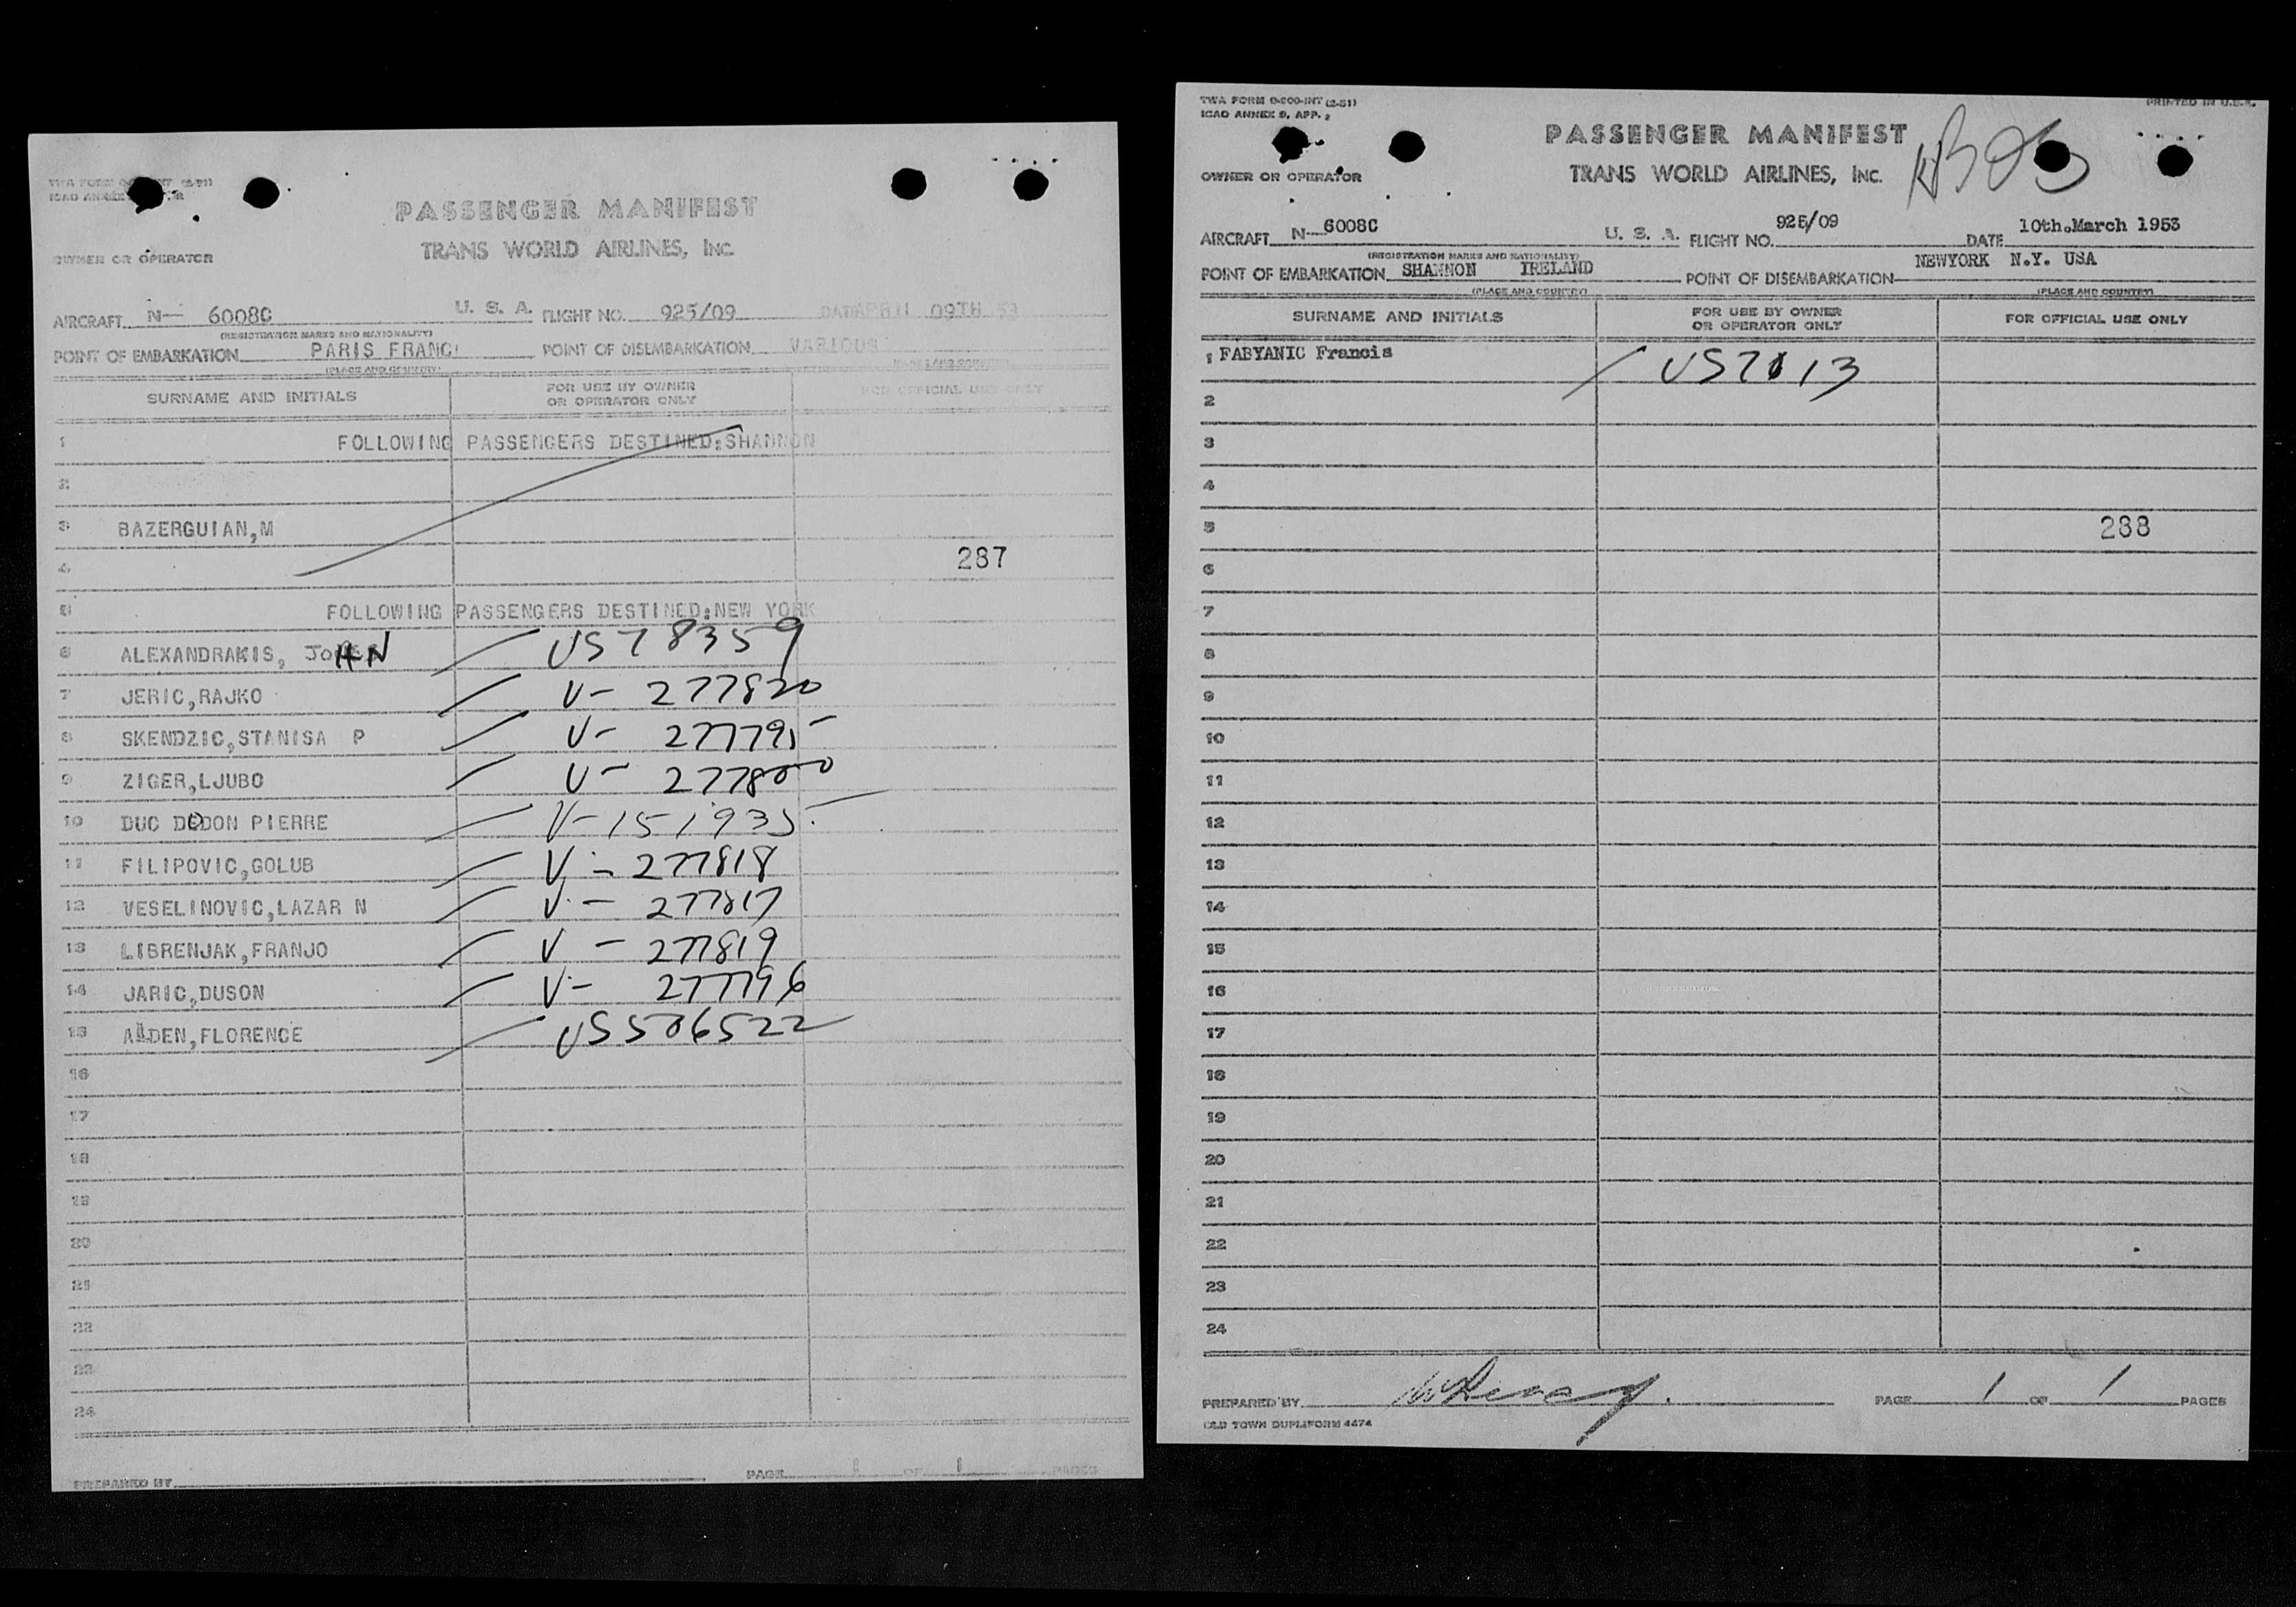 PASSENGER MANIFEST
TRANS WORLD AIRLINES, INC.
OWNER OR OPERATOR
AIRCRAFT N— 6008C U. S. A. FLIGHT NO. 925/09 09TH 53
(REGISTRATION MARKS AND NATIONALITY)
POINT OF EMBARKATION PARIS FRANC POINT OF DISEMBARKATION VARIOUS
(PLACE AND COUNTRY)
SURNAME AND INITIALS FOR USE BY OWNER OR OPERATOR ONLY FOR OFFICIAL USE ONLY
1 FOLLOWING PASSENGERS DESTINED:SHANNON
2
3 BAZERGUIAN,M
4 287
5 FOLLOWING PASSENGERS DESTINED:NEW YORK
6 ALEXANDRAKIS, JOHN US78359
7 JERIC,RAJKO V- 277820
8 SKENDZIC,STANISA P V- 277795
9 ZIGER,LJUBO V- 277800
10 DUC DODON PIERRE V-151935
11 FILIPOVIC,GOLUB V- 277818
12 VESELINOVIC,LAZAR N V- 277817
13 LIBRENJAK,FRANJO V - 277819
14 JARIC,DUSON V- 277796
15 ALDEN,FLORENCE US506522
16
17
18
19
20
21
22
23
24
PREPARED BY PAGE 1 OF 1 PAGES
TWA FORM O-800-INT (2-51) PRINTED IN U.S.A.
ICAO ANNEX 9, APP. 2
PASSENGER MANIFEST
OWNER OR OPERATOR TRANS WORLD AIRLINES, INC.
AIRCRAFT N—6008C U. S. A. FLIGHT NO. 925/09 DATE 10th.March 1953
(REGISTRATION MARKS AND NATIONALITY)
POINT OF EMBARKATION SHANNON IRELAND POINT OF DISEMBARKATION NEWYORK N.Y. USA
(PLACE AND COUNTRY) (PLACE AND COUNTRY)
SURNAME AND INITIALS FOR USE BY OWNER OR OPERATOR ONLY FOR OFFICIAL USE ONLY
1 FABYANIC Francis US7113
2
3
4
5 288
6
7
8
9
10
11
12
13
14
15
16
17
18
19
20
21
22
23
24
PREPARED BY PAGE 1 OF 1 PAGES
OLD TOWN DUPLIFORM 4474